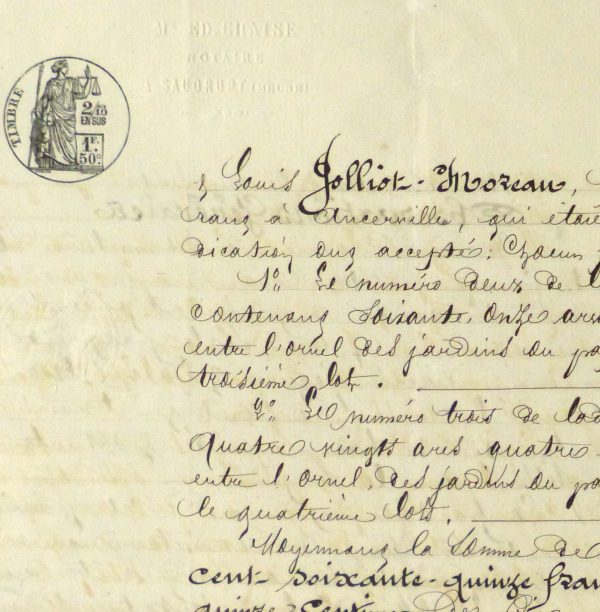 Me ED. CHAISE
NOTAIRE
A SAUDRUPT (MEUSE)
TIMBRE
2/10
EN SUS
1F.
50c.
& Louis Jolliot-Moreau,
rant à Ancerville, qui étai
dication ont accepté: Chacun
1o Le numéro deux de l
contenant soixante-onze ares
entre l'ornel, des jardins du pa
troisième lot.
2o Le numéro trois de lad
quatre vingts ares quatre
entre l'ornel, des jardins du pa
le quatrième lot.
Moyennant la somme de
cent-soixante-quinze fran
quinze centimes